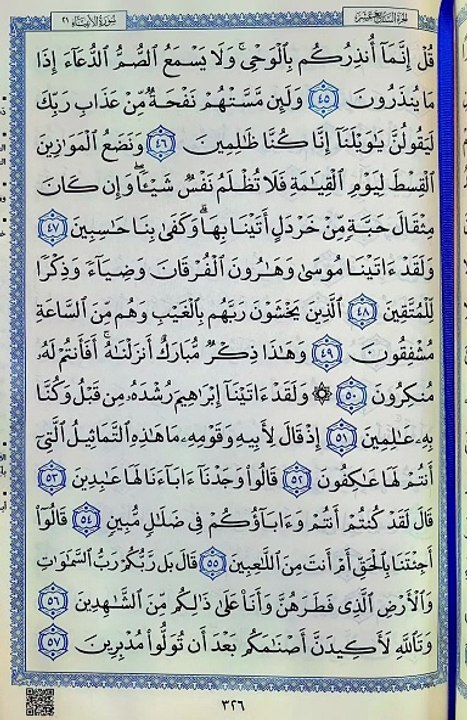 الجزء السابع عشر
سورة الأنبياء ٢١
قُلْ إِنَّمَآ أُنذِرُكُم بِٱلْوَحْىِ ۚ وَلَا يَسْمَعُ ٱلصُّمُّ ٱلدُّعَآءَ إِذَا
مَا يُنذَرُونَ ٤٥ وَلَئِن مَّسَّتْهُمْ نَفْحَةٌ مِّنْ عَذَابِ رَبِّكَ
لَيَقُولُنَّ يَٰوَيْلَنَآ إِنَّا كُنَّا ظَٰلِمِينَ ٤٦ وَنَضَعُ ٱلْمَوَٰزِينَ
ٱلْقِسْطَ لِيَوْمِ ٱلْقِيَٰمَةِ فَلَا تُظْلَمُ نَفْسٌ شَيْـًٔا ۖ وَإِن كَانَ
مِثْقَالَ حَبَّةٍ مِّنْ خَرْدَلٍ أَتَيْنَا بِهَا ۗ وَكَفَىٰ بِنَا حَٰسِبِينَ ٤٧
وَلَقَدْ ءَاتَيْنَا مُوسَىٰ وَهَٰرُونَ ٱلْفُرْقَانَ وَضِيَآءً وَذِكْرًا
لِّلْمُتَّقِينَ ٤٨ ٱلَّذِينَ يَخْشَوْنَ رَبَّهُم بِٱلْغَيْبِ وَهُم مِّنَ ٱلسَّاعَةِ
مُشْفِقُونَ ٤٩ وَهَٰذَا ذِكْرٌ مُّبَارَكٌ أَنزَلْنَٰهُ ۚ أَفَأَنتُمْ لَهُۥ
مُنكِرُونَ ٥٠ ۞ وَلَقَدْ ءَاتَيْنَآ إِبْرَٰهِيمَ رُشْدَهُۥ مِن قَبْلُ وَكُنَّا
بِهِۦ عَٰلِمِينَ ٥١ إِذْ قَالَ لِأَبِيهِ وَقَوْمِهِۦ مَا هَٰذِهِ ٱلتَّمَاثِيلُ ٱلَّتِىٓ
أَنتُمْ لَهَا عَٰكِفُونَ ٥٢ قَالُوا۟ وَجَدْنَآ ءَابَآءَنَا لَهَا عَٰبِدِينَ ٥٣
قَالَ لَقَدْ كُنتُمْ أَنتُمْ وَءَابَآؤُكُمْ فِى ضَلَٰلٍ مُّبِينٍ ٥٤ قَالُوٓا۟
أَجِئْتَنَا بِٱلْحَقِّ أَمْ أَنتَ مِنَ ٱللَّٰعِبِينَ ٥٥ قَالَ بَل رَّبُّكُمْ رَبُّ ٱلسَّمَٰوَٰتِ
وَٱلْأَرْضِ ٱلَّذِى فَطَرَهُنَّ وَأَنَا۠ عَلَىٰ ذَٰلِكُم مِّنَ ٱلشَّٰهِدِينَ ٥٦
وَتَٱللَّهِ لَأَكِيدَنَّ أَصْنَٰمَكُم بَعْدَ أَن تُوَلُّوا۟ مُدْبِرِينَ ٥٧
٣٢٦